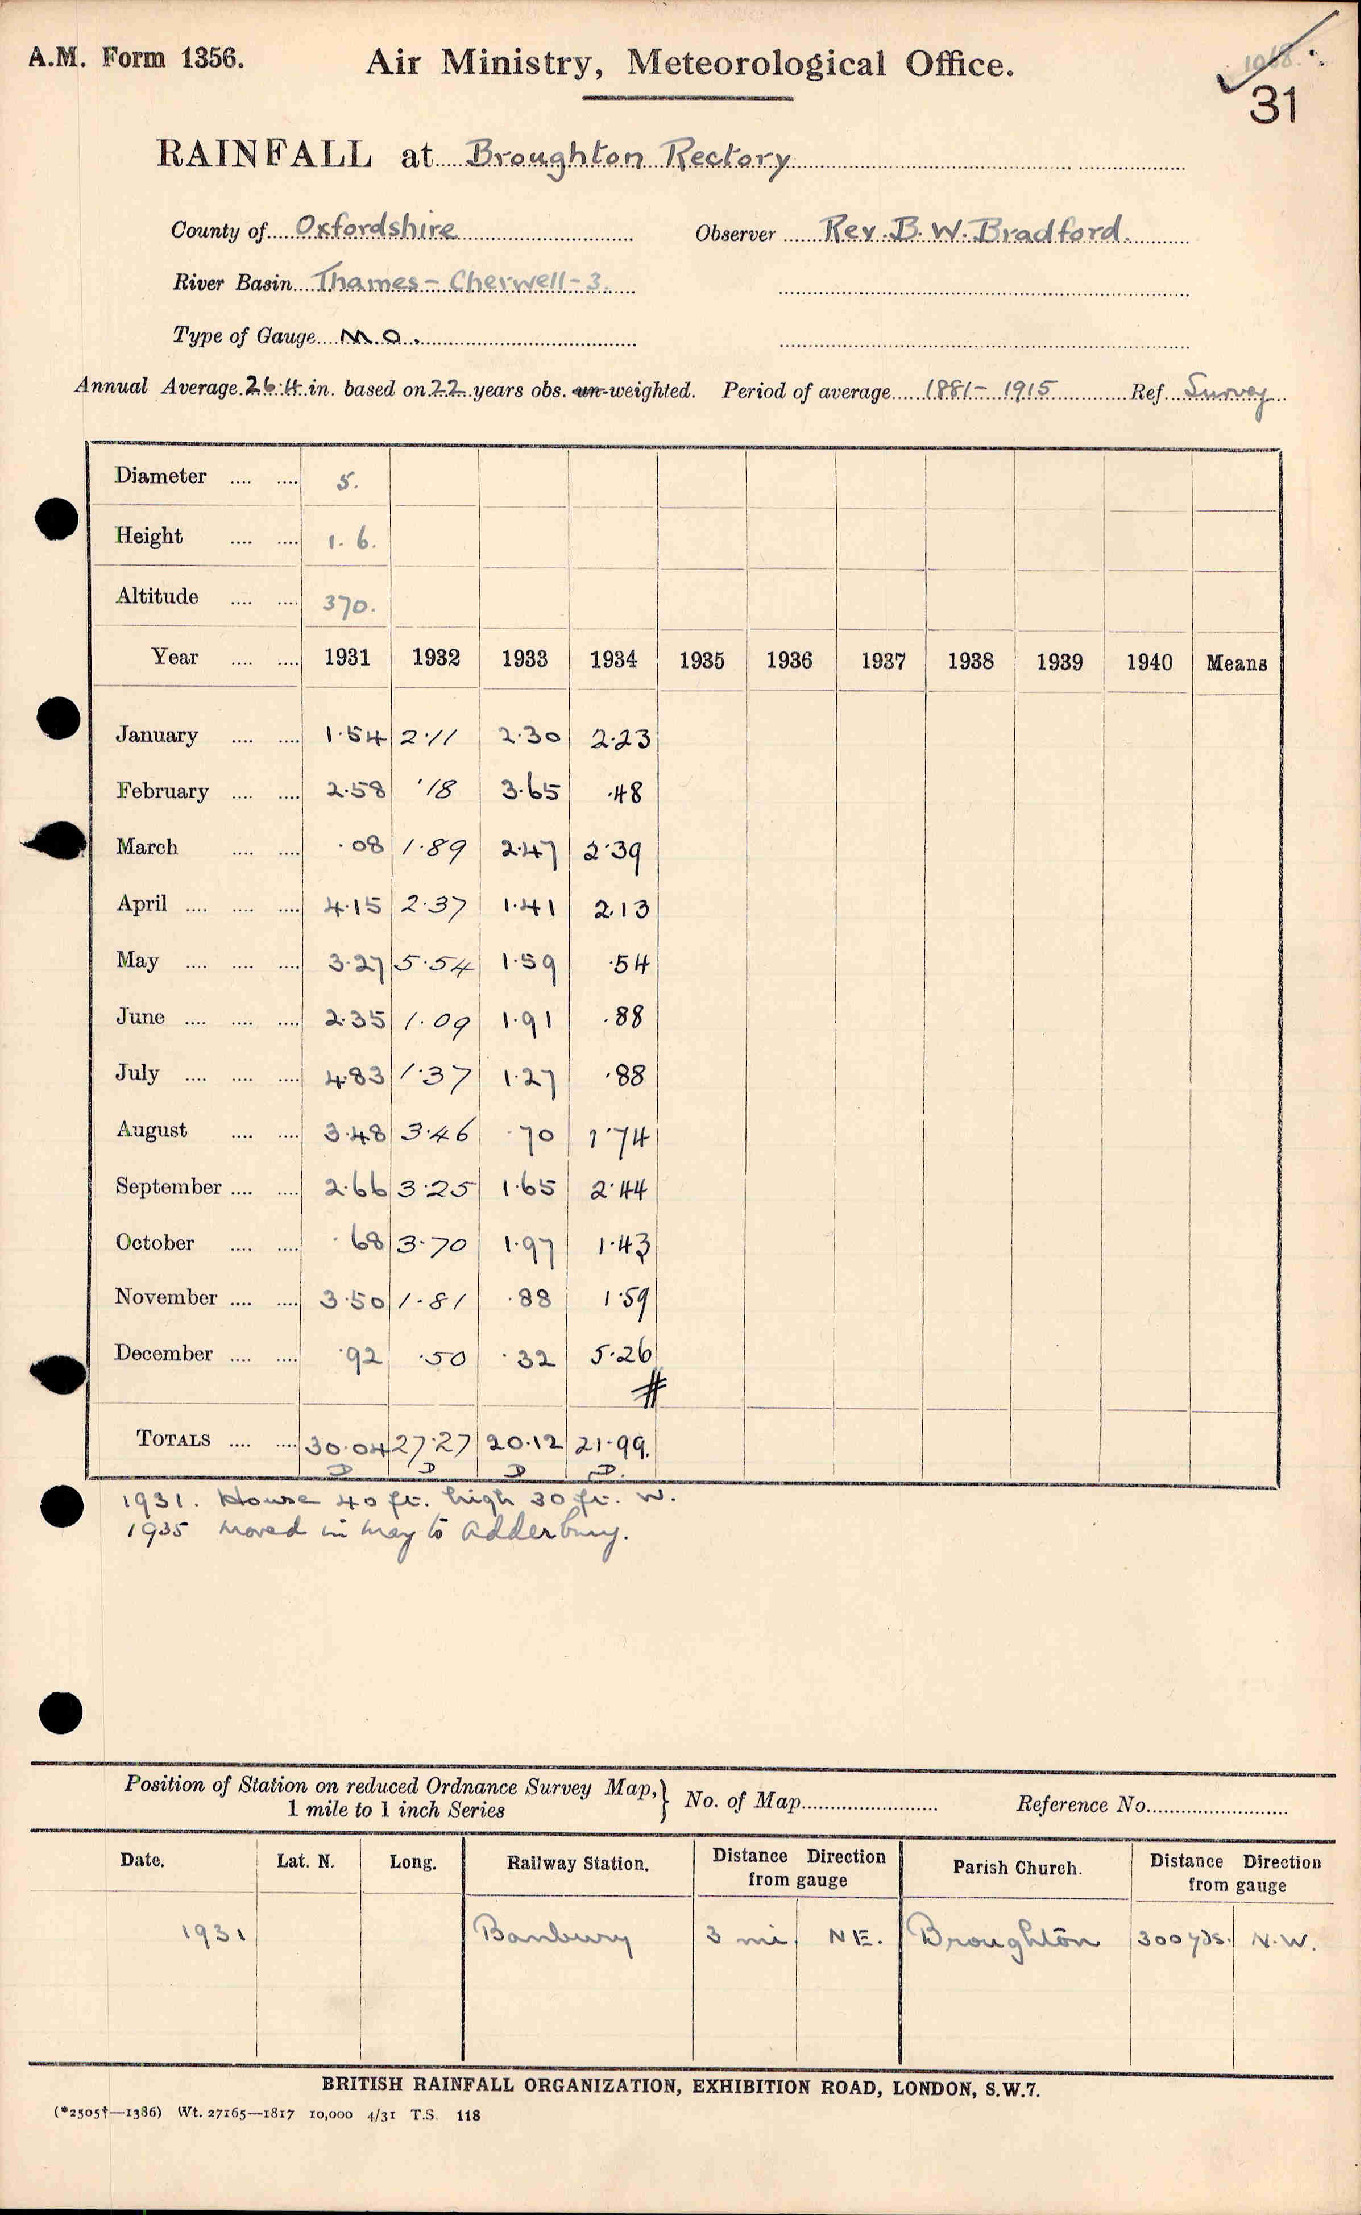 1068.
A.M. Form 1356.
Air Ministry, Meteorological Office.
31
RAINFALL at Broughton Rectory
County of Oxfordshire Observer Rev. B. W. Bradford.
River Basin Thames - Cherwell - 3.
Type of Gauge M.O.
Annual Average 26.4 in. based on 22 years obs. un-weighted. Period of average 1881 - 1915 Ref. Survey
Diameter .... .... 5.
Height .... .... 1. 6.
Altitude .... .... 370.
Year .... .... 1931 1932 1933 1934 1935 1936 1937 1938 1939 1940 Means
January .... .... 1.54 2.11 2.30 2.23
February .... .... 2.58 .18 3.65 .48
March .... .... .08 1.89 2.47 2.39
April .... .... .... 4.15 2.37 1.41 2.13
May .... .... .... 3.27 5.54 1.59 .54
June .... .... .... 2.35 1.09 1.91 .88
July .... .... .... 4.83 1.37 1.27 .88
August .... .... 3.48 3.46 .70 1.74
September .... .... 2.66 3.25 1.65 2.44
October .... .... .68 3.70 1.97 1.43
November .... .... 3.50 1.81 .88 1.59
December .... .... .92 .50 .32 5.26
#
TOTALS .... .... 30.04 27.27 20.12 21.99.
D D D D.
1931. House 40 ft. high 30 ft. W.
1935 Moved in May to Adderbury.
Position of Station on reduced Ordnance Survey Map, } No. of Map Reference No.
1 mile to 1 inch Series
Date. Lat. N. Long. Railway Station. Distance from gauge Direction Parish Church. Distance from gauge Direction
1931 Banbury 3 mi. NE. Broughton 300 yds. N.W.
BRITISH RAINFALL ORGANIZATION, EXHIBITION ROAD, LONDON, S.W.7.
(*2505†—1386) Wt. 27165—1817 10,000 4/31 T.S. 118